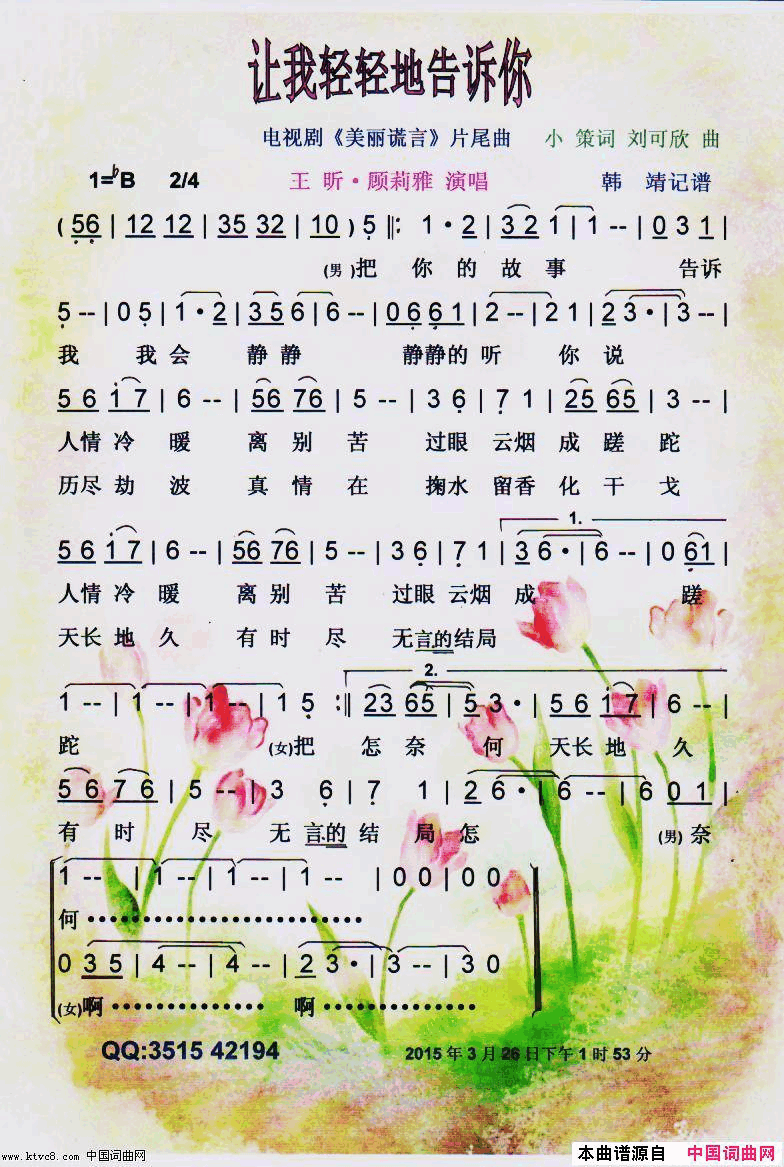 让我轻轻地告诉你
电视剧《美丽谎言》片尾曲 小 策词 刘可欣 曲
1=♭B 2/4 王 昕·顾莉雅 演唱 韩 靖记谱
( 56 | 12 12 | 35 32 | 10 ) 5 ‖: 1·2 | 3 2 1 | 1 -- | 0 3 1 |
(男)把 你 的 故 事 告诉
5 -- | 0 5 | 1·2 | 3 5 6 | 6 -- | 0 6 6 1 | 2 -- | 2 1 | 2 3· | 3 -- |
我 我会 静静 静静的 听 你 说
5 6 1 7 | 6 -- | 56 76 | 5 -- | 3 6 | 7 1 | 25 65 | 3 -- |
人情 冷 暖 离 别 苦 过眼 云烟 成 蹉 跎
历尽 劫 波 真 情 在 掬水 留香 化 干 戈
1.
5 6 1 7 | 6 -- | 56 76 | 5 -- | 3 6 | 7 1 | 3 6· | 6 -- | 0 61 |
人情 冷 暖 离 别 苦 过眼 云烟 成 蹉
天长 地 久 有 时 尽 无言的结局
2.
1 -- | 1 -- | 1 -- | 1 5 :‖ 23 65 | 5 3· | 5 6 1 7 | 6 -- |
跎 (女)把 怎 奈 何 天长 地 久
5 6 7 6 | 5 -- | 3 6 | 7 1 | 2 6· | 6 -- | 6 0 1 |
有 时 尽 无 言的 结 局 怎 (男)奈
1 -- | 1 -- | 1 -- | 1 -- | 00 | 00
何••••••••••••••••••••
0 3 5 | 4 -- | 4 -- | 2 3· | 3 -- | 3 0
(女)啊••••••••••••• 啊••••••••••
QQ:3515 42194 2015 年 3 月 26 日下午 1 时 53 分
www.ktvc8.com 中国词曲网 本曲谱源自 中国词曲网